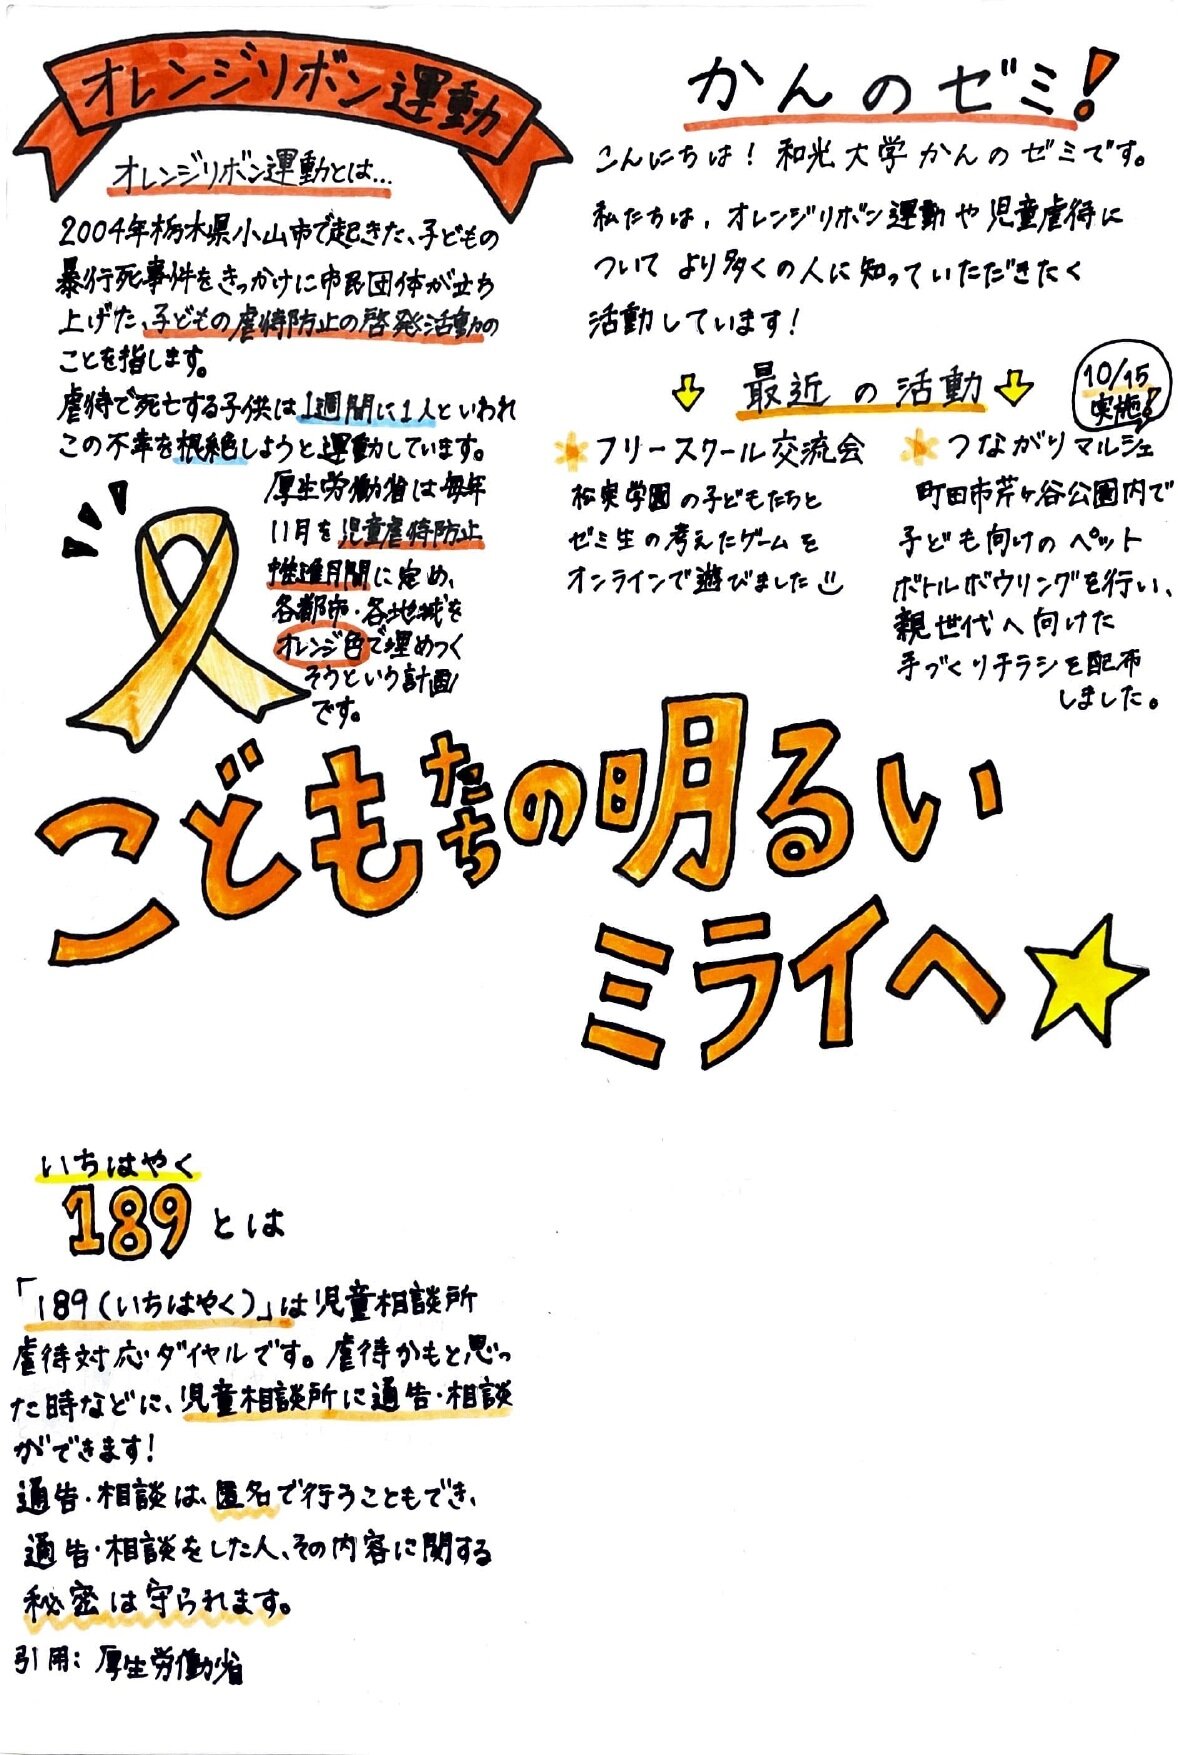 オレンジリボン運動
オレンジリボン運動とは…
2004年栃木県小山市で起きた、子どもの
暴行死事件をきっかけに市民団体が立ち
上げた、子どもの虐待防止の啓発活動の
ことを指します。
虐待で死亡する子供は1週間に1人といわれ
この不幸を根絶しようと運動しています。
厚生労働省は毎年
11月を児童虐待防止
推進月間に定め、
各都市・各地域を
オレンジ色で埋めつく
そうという計画
です。
かんのゼミ!
こんにちは! 和光大学かんのゼミです。
私たちは、オレンジリボン運動や児童虐待に
ついてより多くの人に知っていただきたく
活動しています!
最近の活動
10/15
実施!
フリースクール交流会
松実学園の子どもたちと
ゼミ生の考えたゲームを
オンラインで遊びました
つながりマルシェ
町田市芹ヶ谷公園内で
子ども向けのペット
ボトルボウリングを行い、
親世代へ向けた
手づくりチラシを配布
しました。
こどもたちの明るい
ミライへ
いちはやく
189とは
「189(いちはやく)」は児童相談所
虐待対応ダイヤルです。虐待かもと思っ
た時などに、児童相談所に通告・相談
ができます!
通告・相談は、匿名で行うこともでき、
通告・相談をした人、その内容に関する
秘密は守られます。
引用: 厚生労働省